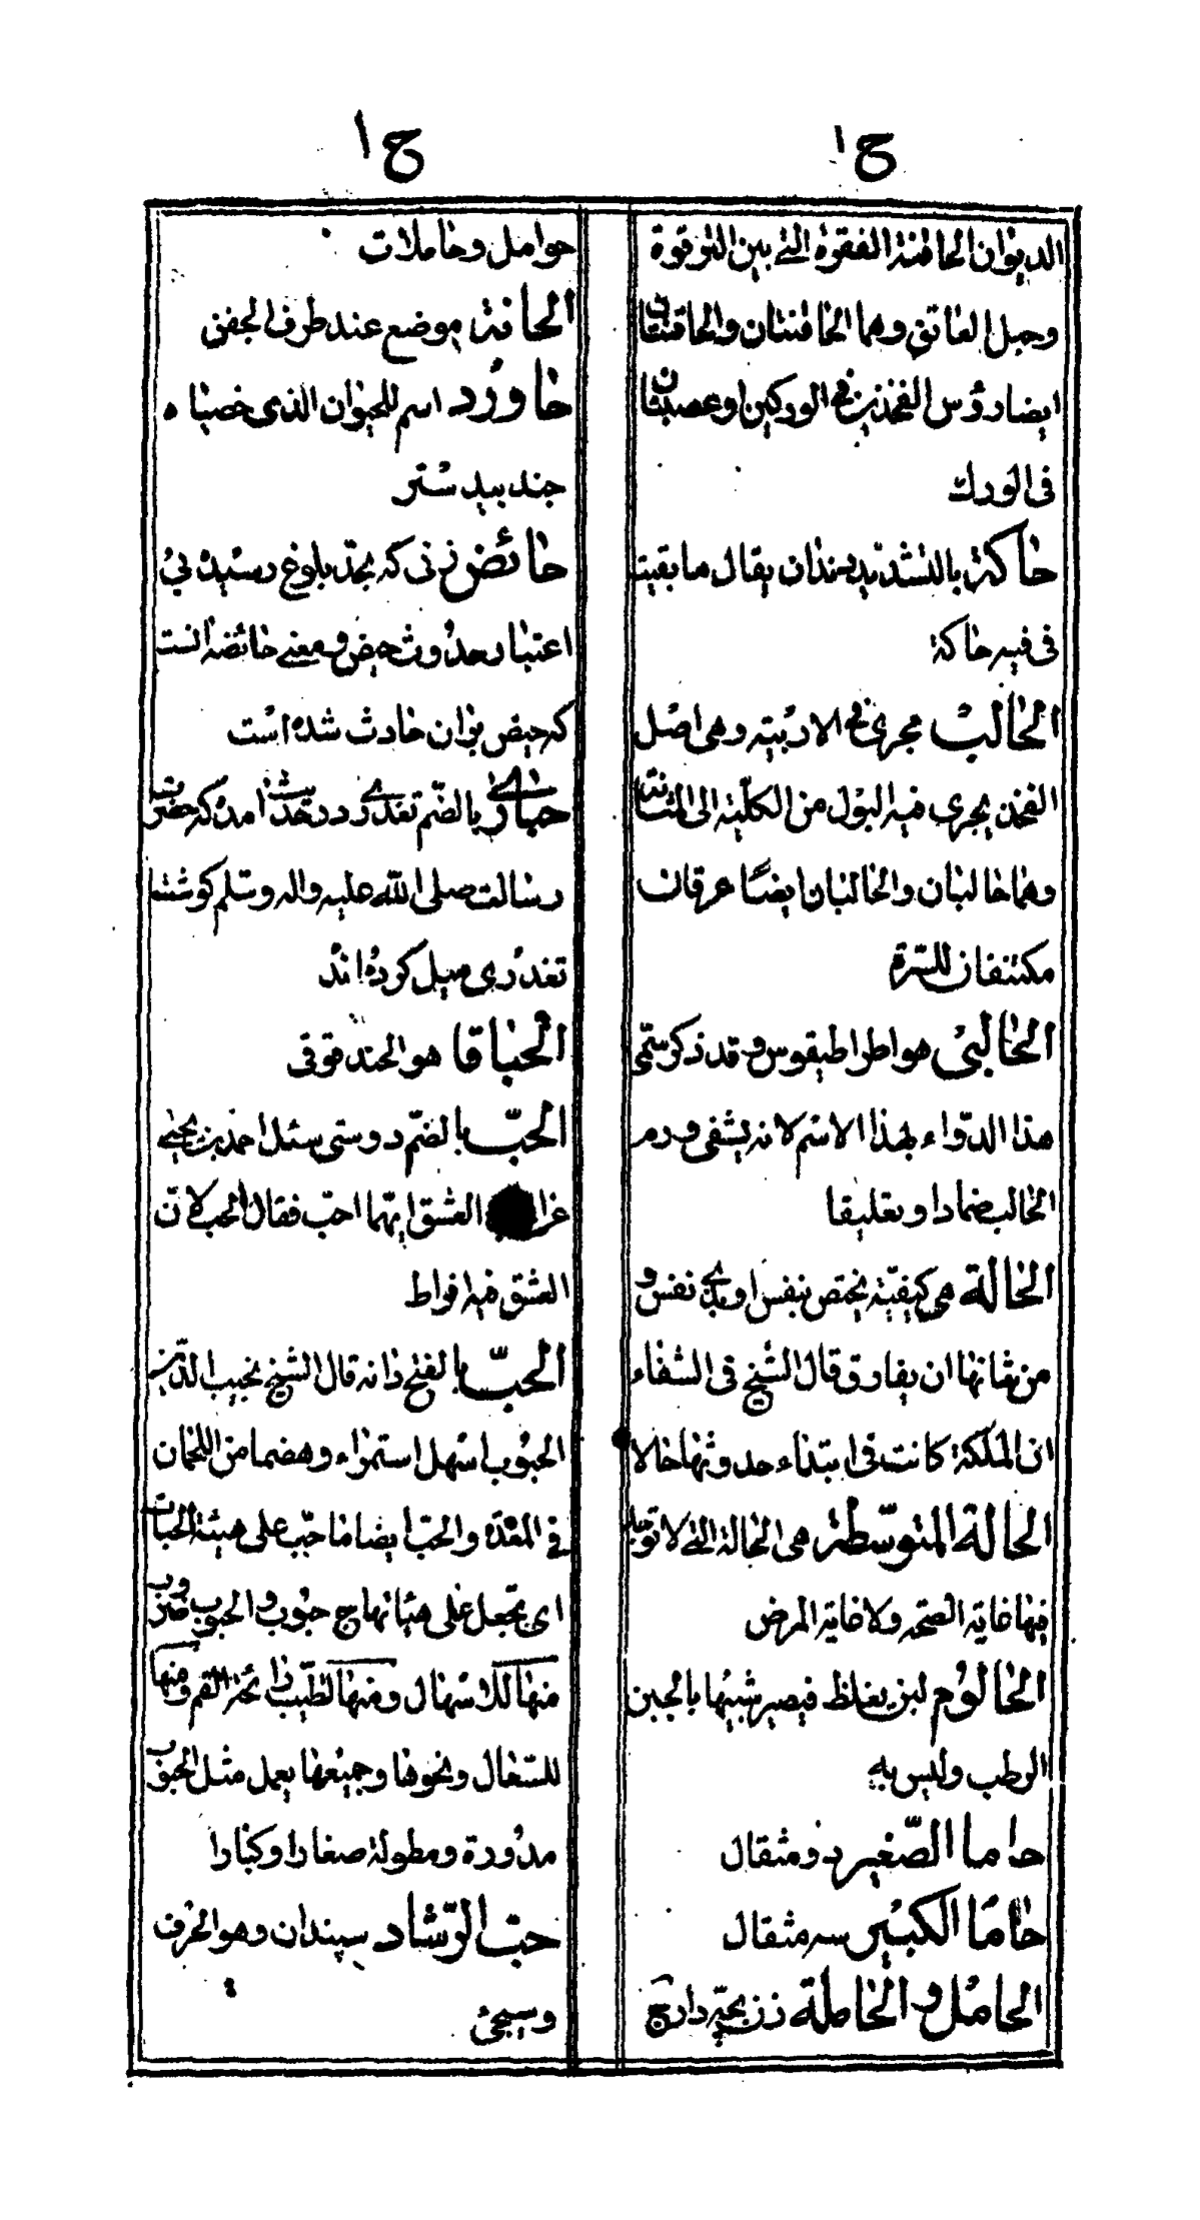 ح ا
الديوان الحاقنة الفقرة التى بين الترقوة
وحبل العاتق وهما الحاقنتان والحاقنتان
ايضا رؤس الفخذين فى الوركين او عصبتان
فى الورك
حاكة بالتشديد دندان يقال ما بقيت
فى فيه حاكة
الحالب مجرى فى الاربية وهى اصل
الفخذ يجرى فيه البول من الكلية الى المثانة
وهما حالبان والحالبان ايضا عرقان
مكتنفان للسرة
الحالبى هو اطراطيقوس وقد ذكر سمى
هذا الدواء بهذا الاسم لانه يشفى ورم
الحالب ضمادا وتعليقا
الحالة هى كيفية يختص بنفس او بذى نفس و
من شانها ان يفارق قال الشيخ فى الشفاء
ان الملكة كانت فى ابتداء حدوثها حالا
الحالة المتوسطة هى الحالة التى لا توجد
فيها غاية الصحة ولا غاية المرض
الحالوم لبن يغلظ فيصير شبيها بالجبن
الرطب وليس به
حاما الصغير دو مثقال
حاما الكبير سه مثقال
الحامل والحاملة زن بچه دار ج
ح ا
حوامل وحاملات
الحانة موضع عند طرف الجفن
حاورد اسم للحيوان الذى خصياه
جند بيدستر
حائض زنى كه بحد بلوغ رسيده بى
اعتبار حدوث حيض ومعنى حائضه انست
كه حيض بر ان حادث شده است
حبارى بالضم تغدرى در حديث امده كه حضرت
رسالت صلى الله عليه واله وسلم كوشت
تغدرى ميل كرده اند
الحباقا هو الحندقوقى
الحب بالضم دوستى سئل احمد بن يحيى
العشق ايهما احب فقال الحب لان
العشق فيه افراط
الحب بالفتح دانه قال الشيخ نجيب الدين
الحبوب اسهل استمراء وهضما من اللحمان
فى المعدة والحب ايضا ما حبب على هيئة الحبات
اى تجعل على هيئاتها ج حبوب و الحبوب ضروب
منها للاسهال ومنها لتطييب الفم ومنها
للسعال ونحوها وجميعها يعمل مثل الحبوب
مدورة ومطولة صغارا وكبارا
حب الرشاد سپندان وهو الحرف
وسيجئ